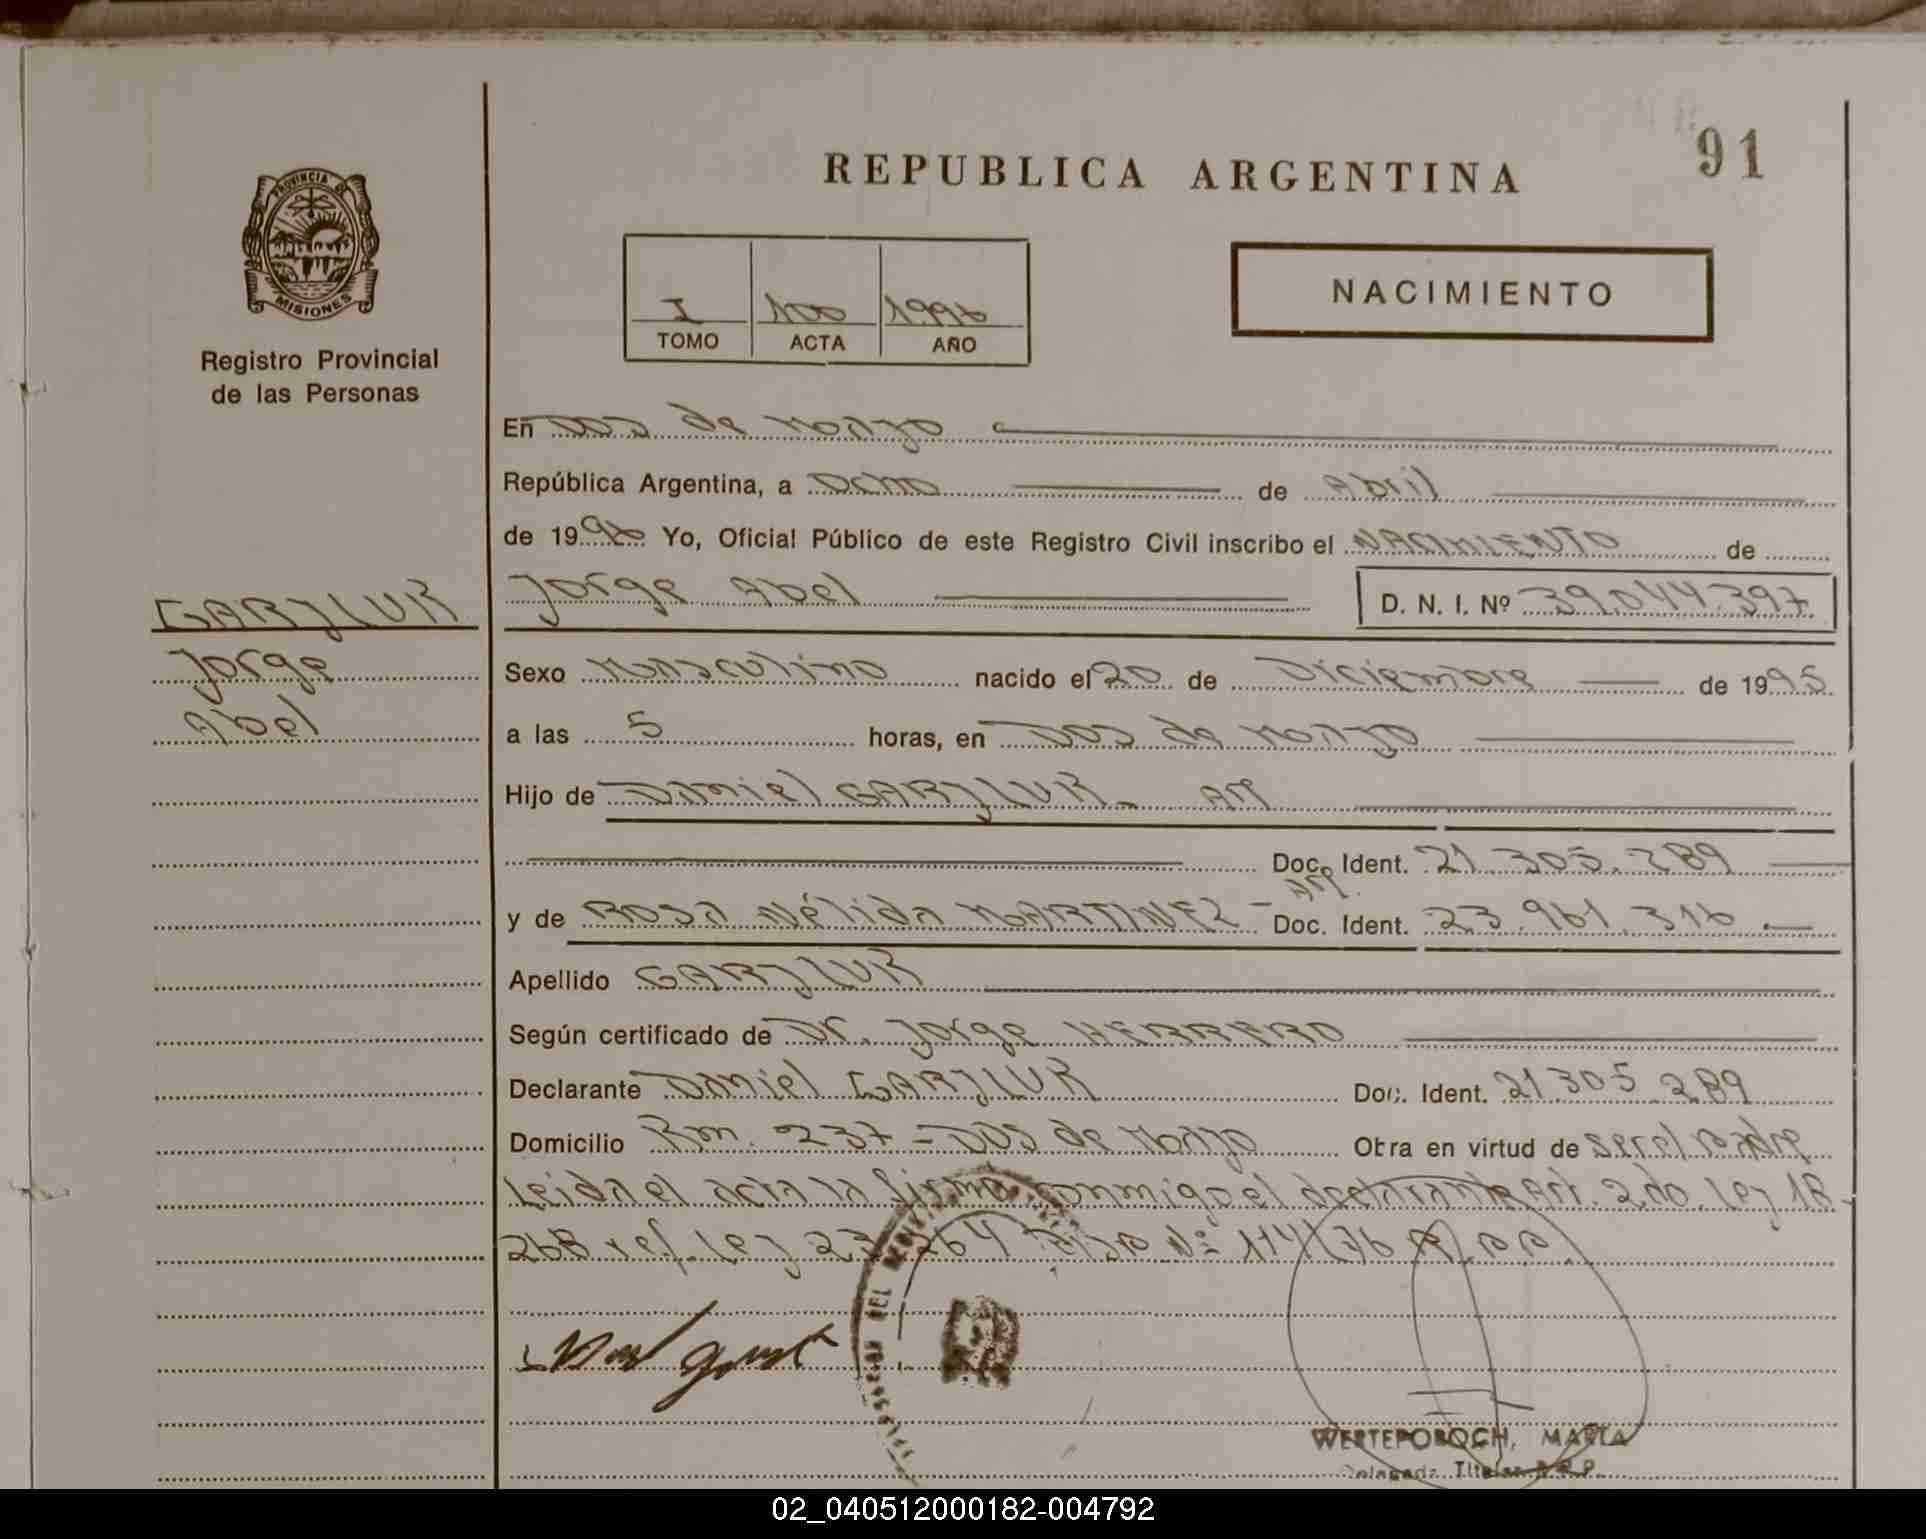 PROVINCIA DE
MISIONES
Registro Provincial
de las Personas
REPUBLICA ARGENTINA
91
I 100 1996
TOMO ACTA AÑO
NACIMIENTO
En Dos de Mayo
República Argentina, a Ocho de Abril
de 1996 Yo, Oficial Público de este Registro Civil inscribo el NACIMIENTO de
Jorge Abel D. N. I. Nº 39.044.397
GARJLUK
Jorge
Abel
Sexo Masculino nacido el 20 de Diciembre de 1995
a las 5 horas, en Dos de Mayo
Hijo de Daniel GARJLUK - Arg
Doc. Ident. 21.305.289
Arg.
y de Rosa Nélida MARTINEZ - Doc. Ident. 23.961.316
Apellido GARJLUK
Según certificado de Dr. Jorge HERRERO
Declarante Daniel GARJLUK Doc. Ident. 21.305.289
Domicilio Km. 237 - Dos de Mayo Obra en virtud de ser el padre
leida el acta la firma conmigo el declarante Art. 2do. Ley 18-
268 ref. Ley 23 264 Nº 114/76
DEL
WERTEPOROCH, MARIA
Delegada Titular R.P.P.
02_040512000182-004792